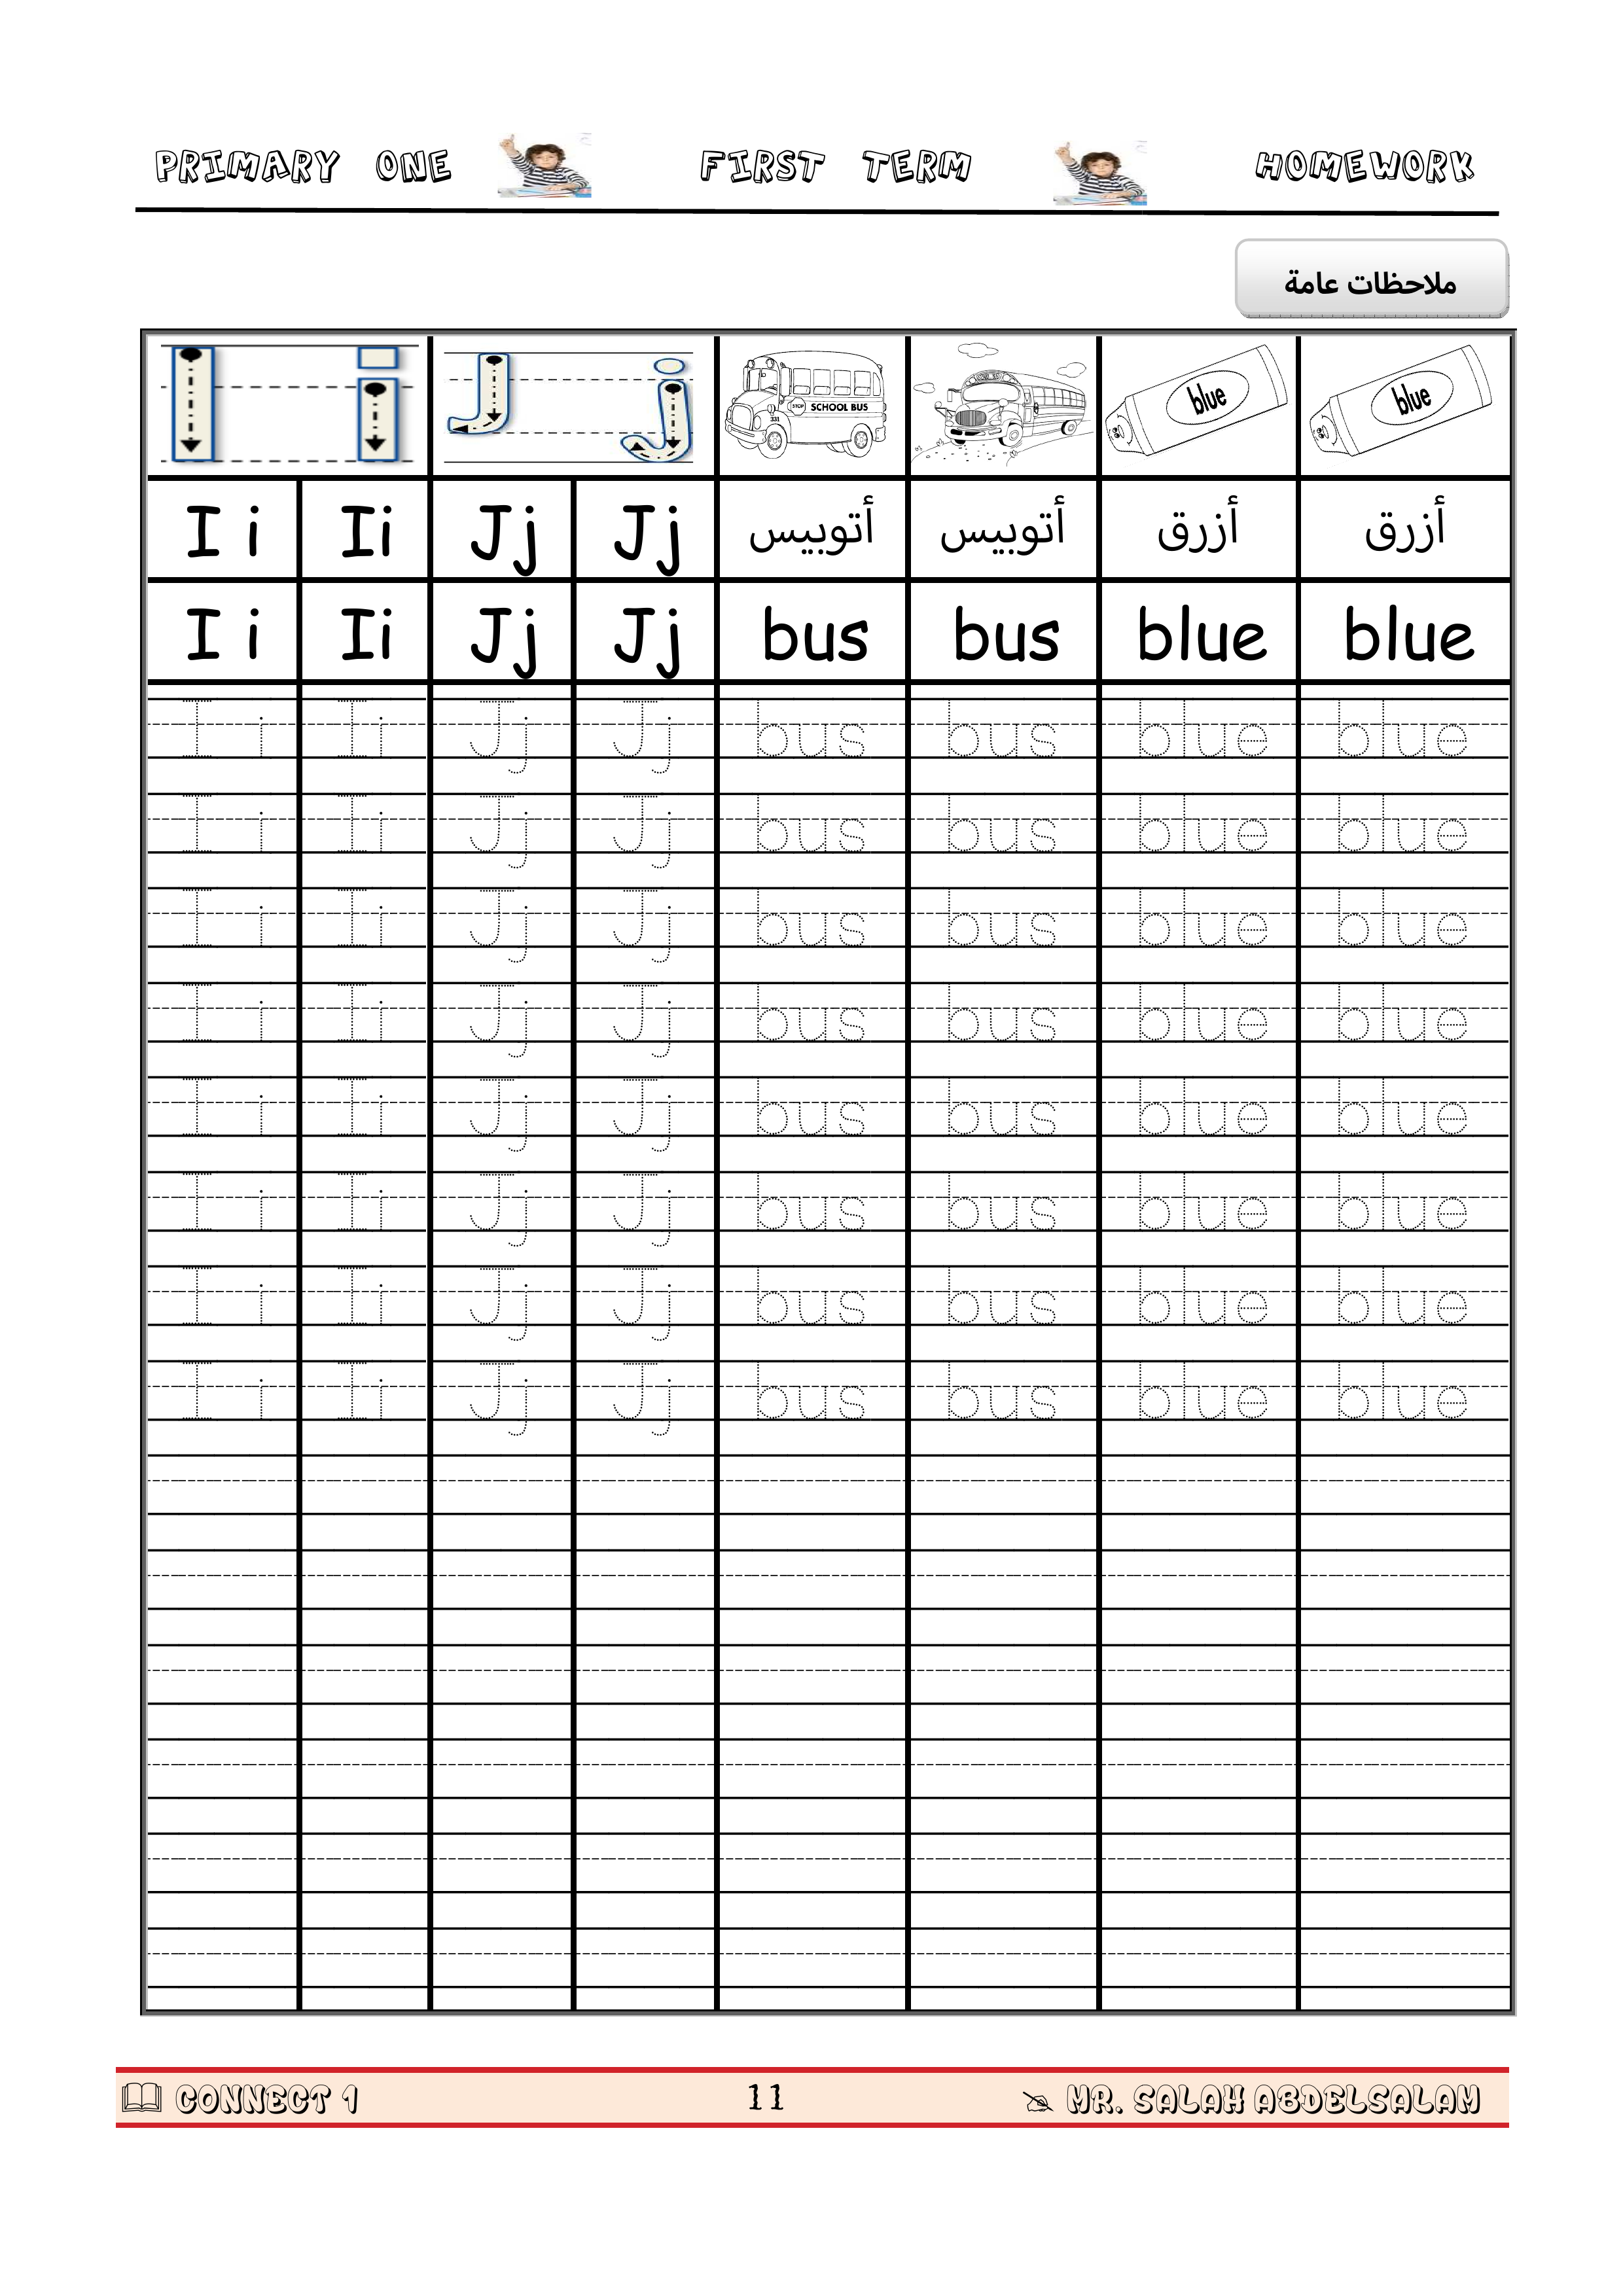 PRIMARY ONE FIRST TERM HOMEWORK
ملاحظات عامة
I i J j STOP SCHOOL BUS 331 blue blue
I i Ii Jj Jj أتوبيس أتوبيس أزرق أزرق
I i Ii Jj Jj bus bus blue blue
I i Ii Jj Jj bus bus blue blue
I i Ii Jj Jj bus bus blue blue
I i Ii Jj Jj bus bus blue blue
I i Ii Jj Jj bus bus blue blue
I i Ii Jj Jj bus bus blue blue
I i Ii Jj Jj bus bus blue blue
I i Ii Jj Jj bus bus blue blue
I i Ii Jj Jj bus bus blue blue
CONNECT 1 11 MR. SALAH ABDELSALAM